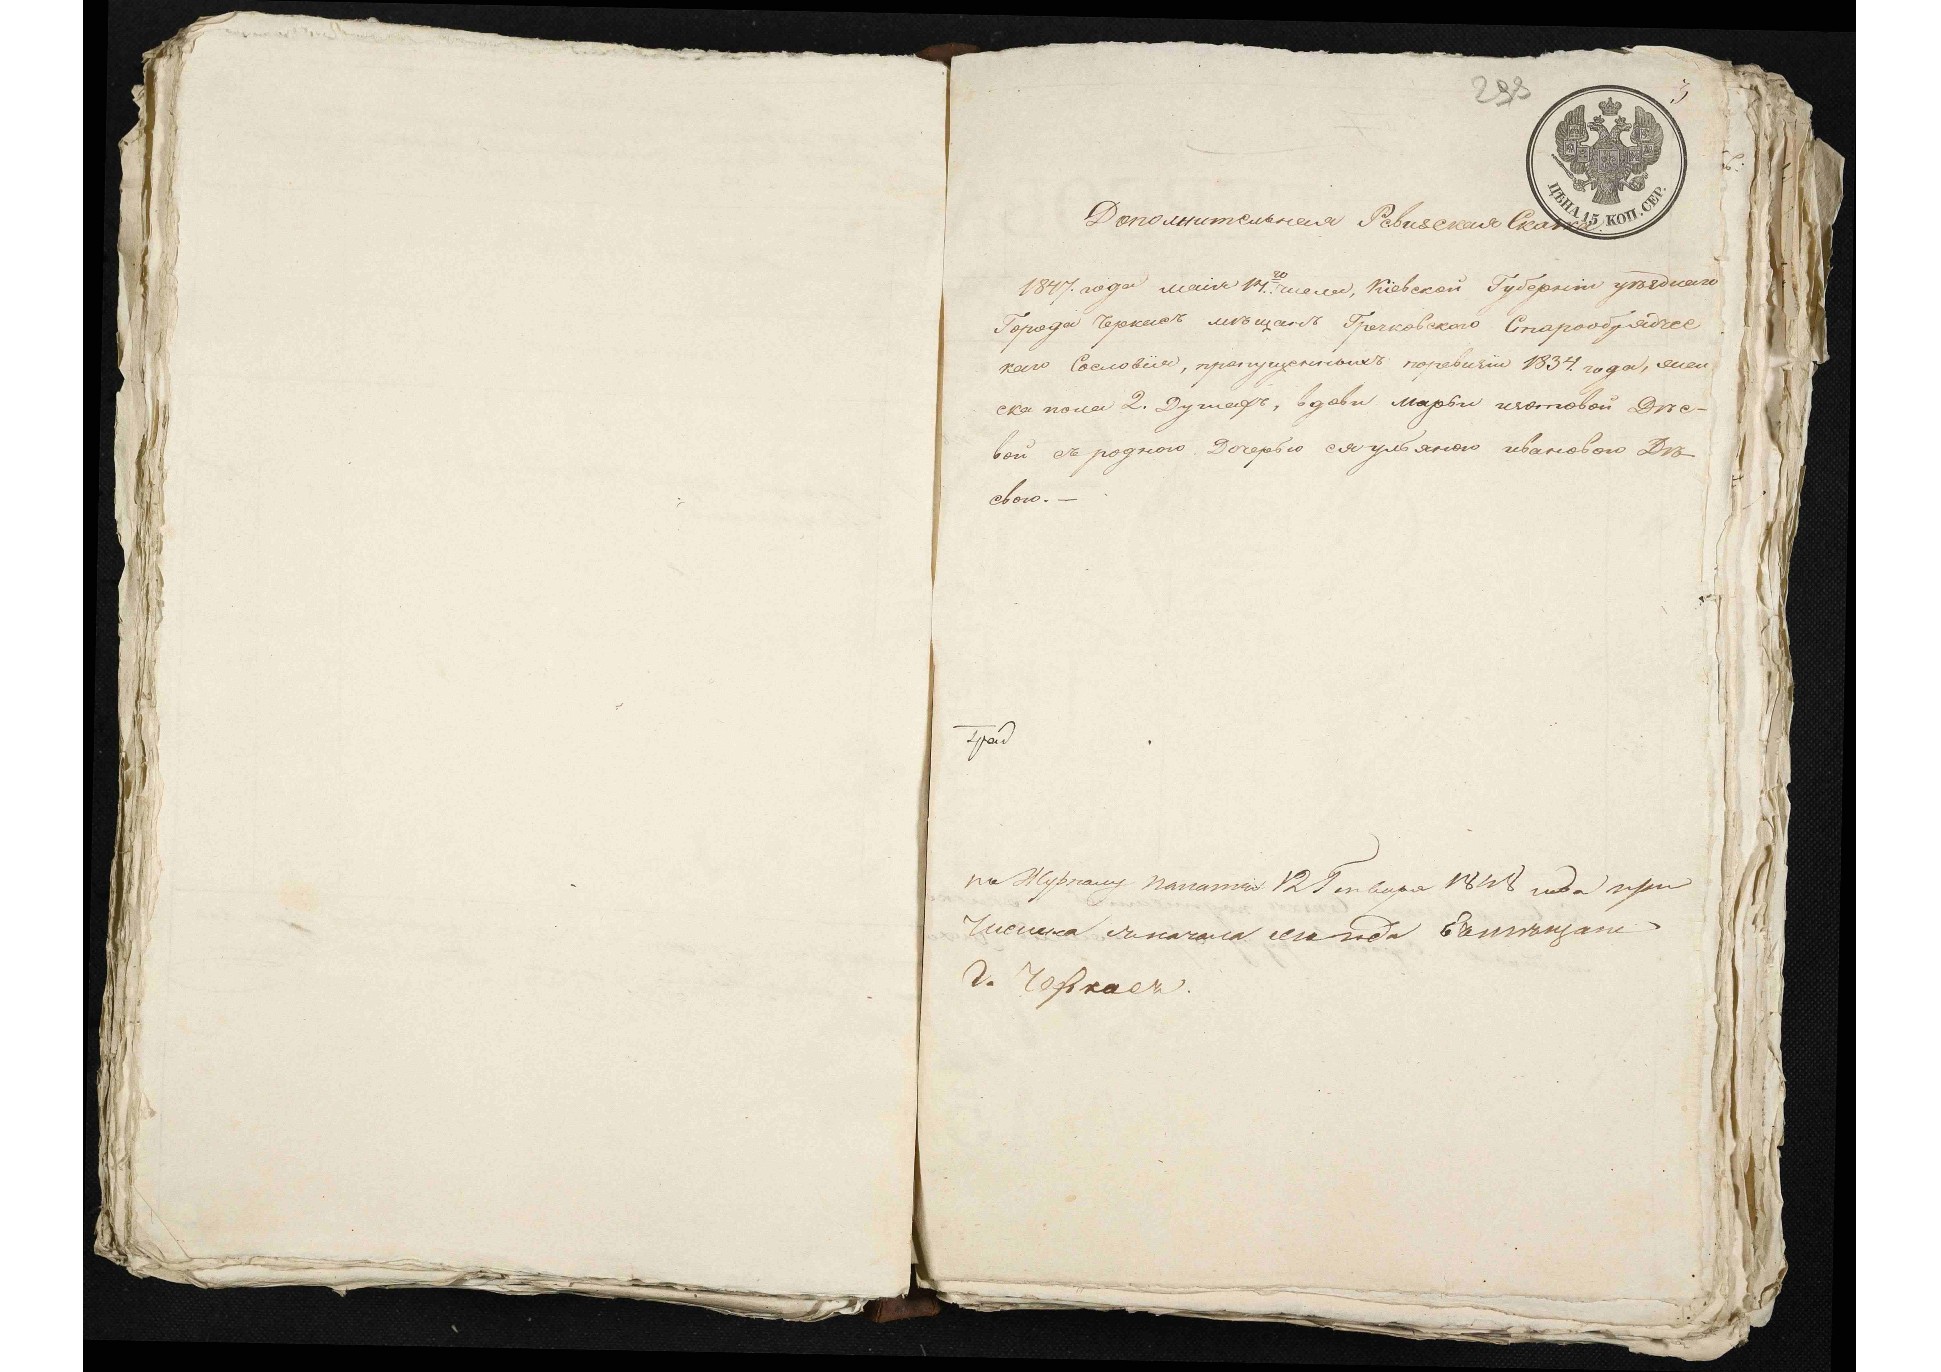 293
3
ЦѢНА 15 КОП. СЕР.
Дополнительная Ревизская Сказка.
1847. года маія 14.го числа, Кіевской Губерніи уѣзднаго
Города Черкасъ мѣщанъ Гречковского Старообрядчес
каго Сословія, пропущенныхъ поревизіи 1834. года, женс
ска пола 2. Душахъ, вдови Марьи Изотовой Дѣе-
вой съ родною Дочерью ея ульяною ивановою Дѣ
евою. —
по Журналу палаты 12 Генваря 1848 года при
Числена сначала сего года въ мѣщане
г. Черкасъ.